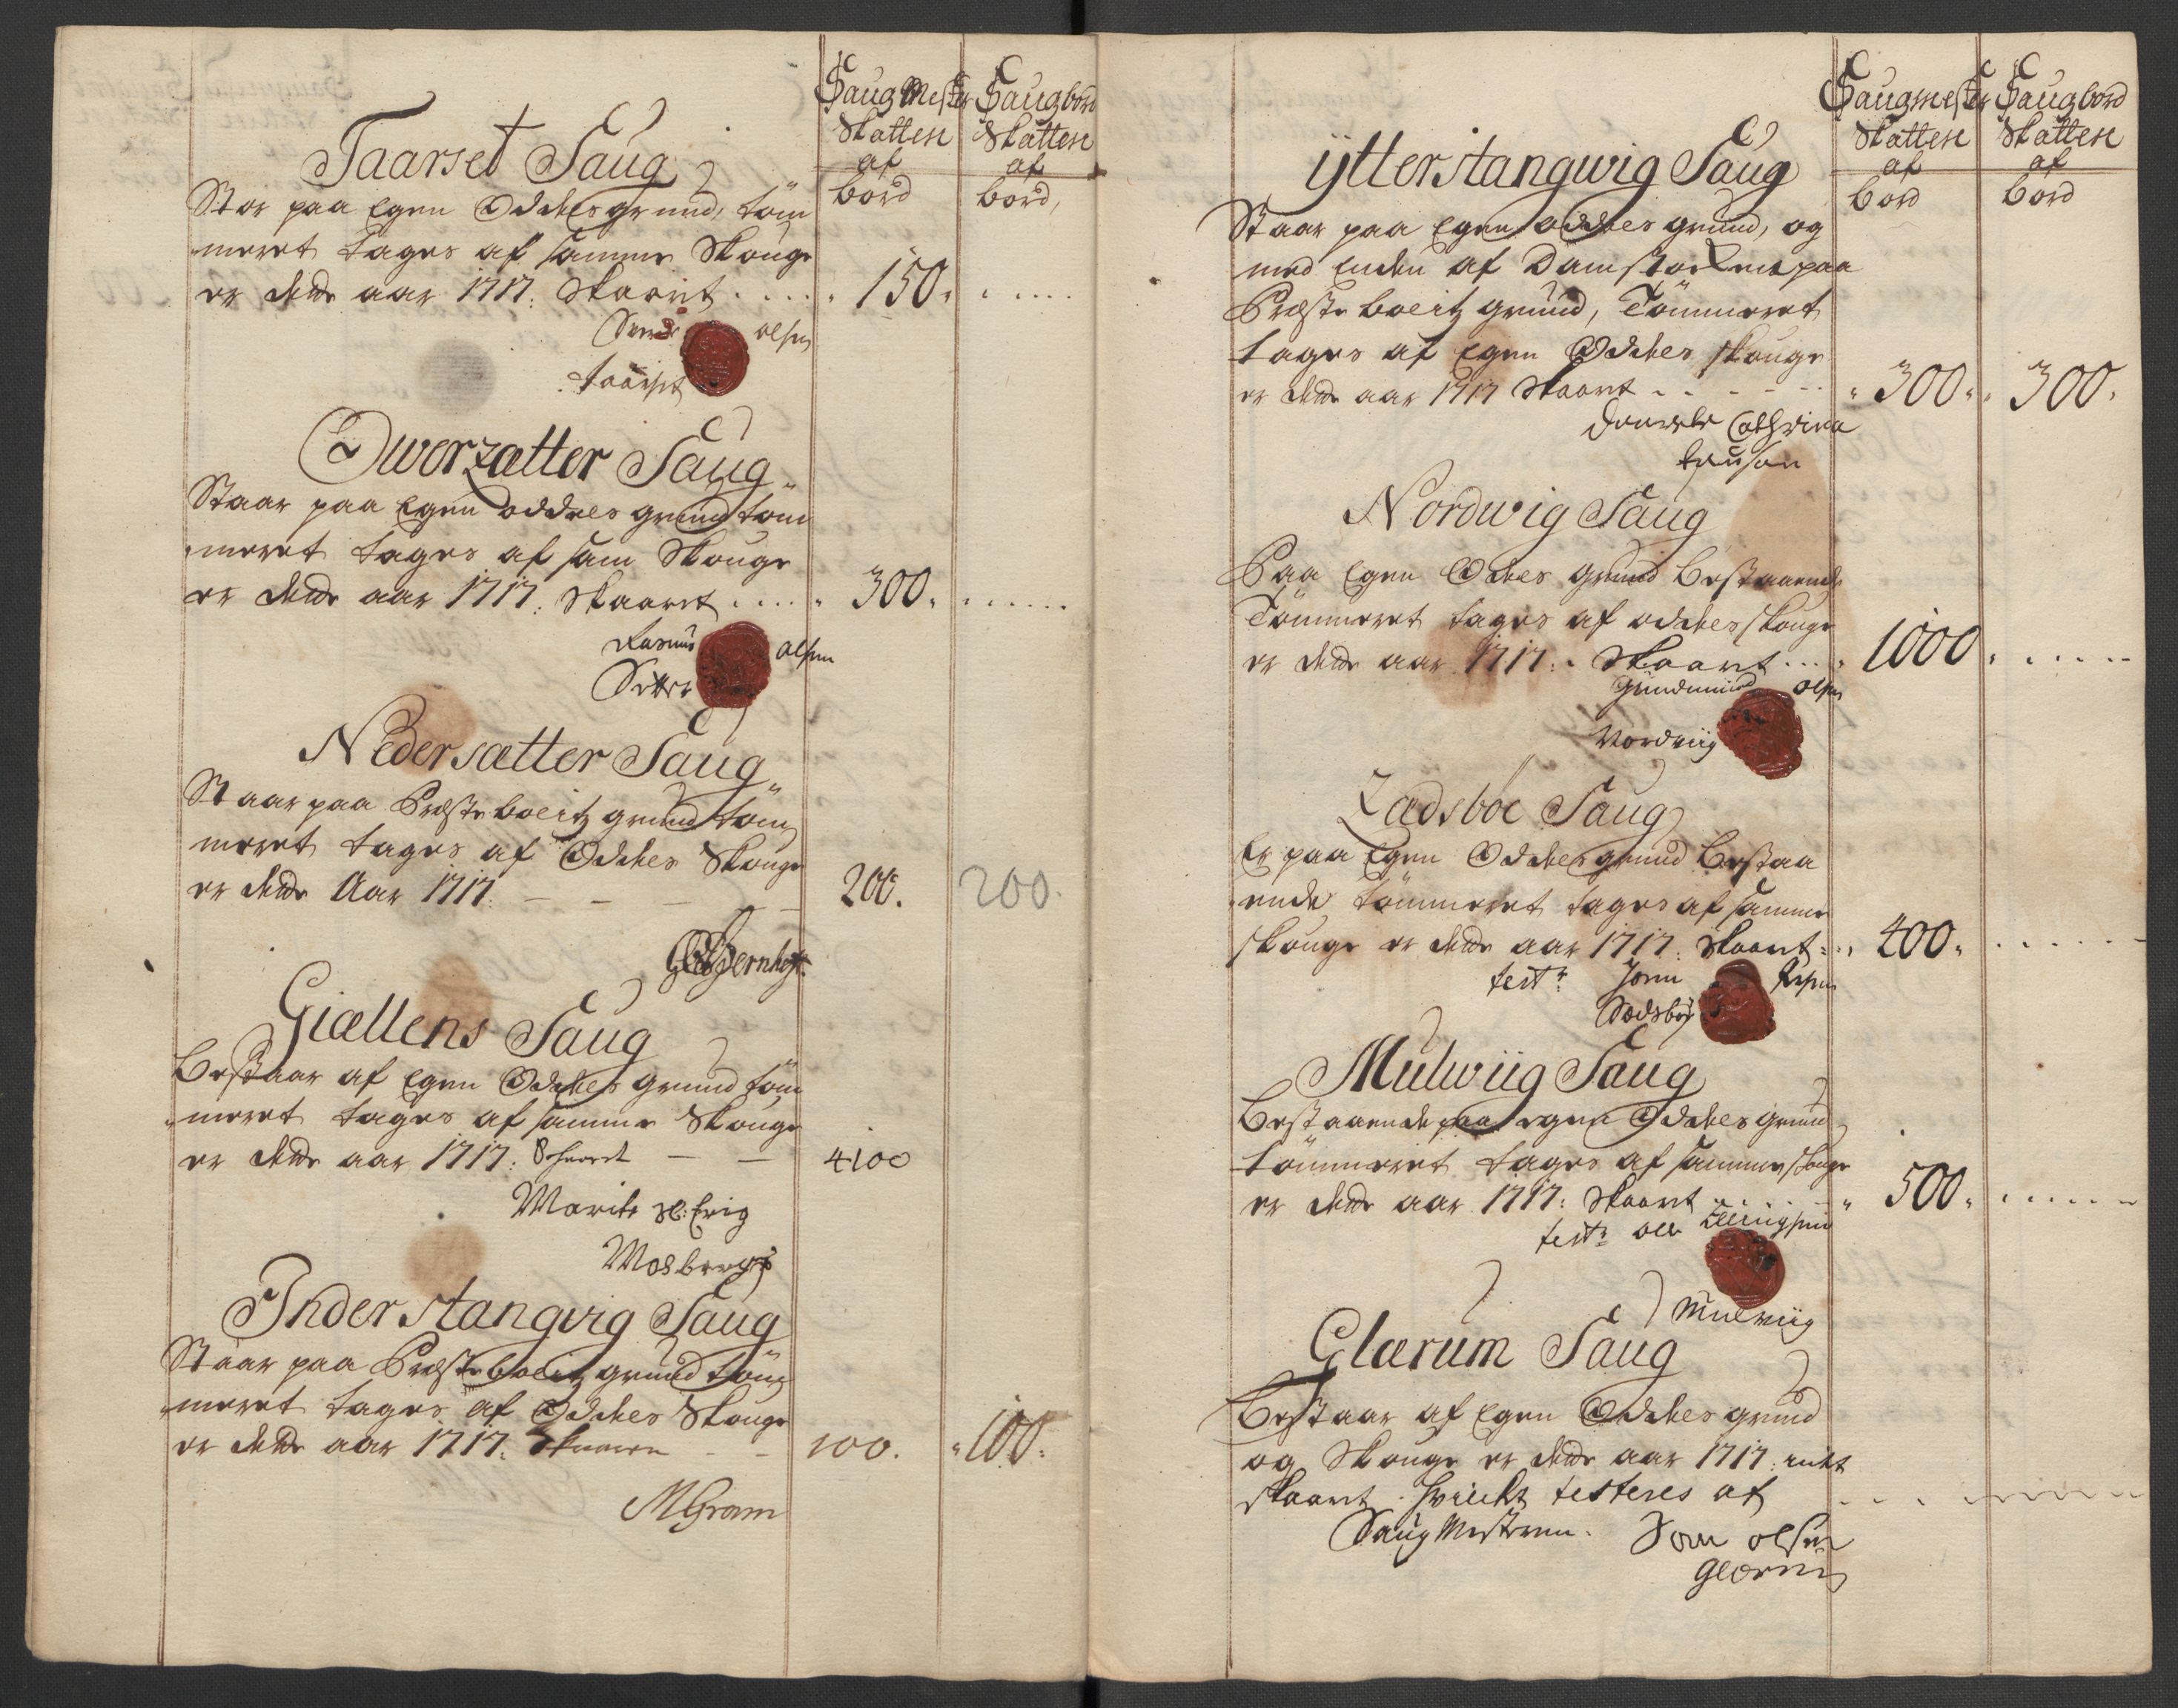 Saug Mester
Skatten
af
bord
Saugbord
Skatten
af
bord,
Taarset Saug
Stor paa Egen Oddels grund, töm
meret tages af samme Skouge
er dette aar 1717: Skaarit 150
Olsen
Taarset
Öwerzætter Saug
Staar paa Egen oddels grund töm
meret tages af sam Skouge
er dette aar 1717: Skaaret 300
Rasmus Olsen
Setter
Nedersætter Saug
Staar paa Præstebolitz grund töm
meret tages af Oddels Skouge
er dette Aar 1717: 200. 200.
Giællens Saug
Bestaar af Egen Oddels grund töm
meret tages af samme Skouge
er dette aar 1717: 4100
Marite Sl: Erig
Mosbergs
Inder stangvig Saug
Staar paa Præstebolitz grund töm
meret tages af Oddels Skouge
er dette aar 1717: Skaaren 100. 100.
MGram
Saugmester
Skatten
af
bord
Saugbord
Skatten
af
bord
ÿtterstangwig Saug
Staar paa Egen oddels grund, og
med Enden af Damstocken paa
Præstebolitz grund, Tömmeret
tages af Egen Oddels skouge
er dette aar 1717 Skaaret 300 300
Cathrina
Nordwig Saug
Paa Egen Odels grund Bestaaende
Tömmeret tages af oddels skouge
er dette aar 1717: Skaaret 1000
Gundmund Olsen
Nordviig
Zædsböe Saug
Er paa Egen Oddels grund Bestaa
ende tömmeret tages af samme
skouge er dette aar 1717: Skaaret 400
test: Jonn
Sædsböe
Mulwiig Saug
Bestaaende paa egen Oddels grund
tömmeret tages af samme skouge
er dette aar 1717: Skaaret 500
test: Ole Ellingsen
Mulviig
Glærum Saug
Bestaar af Egen Oddels grund
og Skouge er dette aar 1717: intet
skaaret. hvilket testeres af
Saug Mesteren. Jon olsen
Glærum